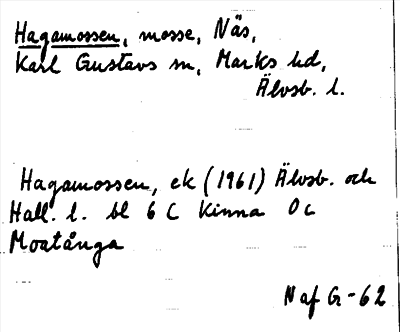 Hagamossen, mosse, Näs,
Karl Gustavs sn, Marks hd,
Älvsb. l.
Hagamossen, ek (1961) Älvsb. och
Hall. l. bl 6 C Kinna 0 c
Moatånga
N af G-62